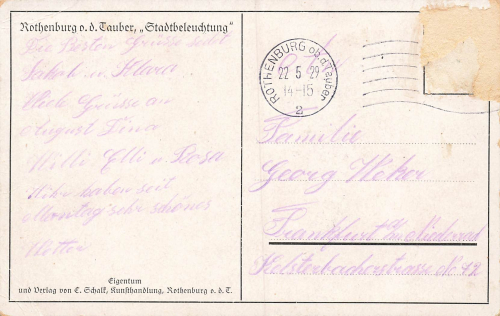 Rothenburg o. d. Tauber, „Stadtbeleuchtung"
Die besten Grüsse
Jakob u. Klara
Viele Grüsse an
August Lina
Willi Elli u. Rosa
Wir haben seit
Montag sehr schönes
Wetter
Eigentum
und Verlag von E. Schalk, Kunsthandlung, Rothenburg o. d. T.
ROTHENBURG ob d. Tauber
22 5 29
14-15
2
Familie
Georg
Frankfurt a/m Niederrad
Kelsterbacherstrasse No 42